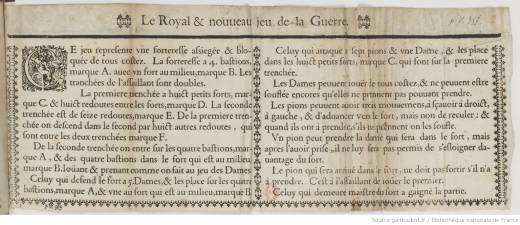 Le Royal & nouueau jeu de-la Guerre.
CE jeu represente vne forteresse assiegée & bloquée
de tous costez. La forteresse a 4. bastions,
marque A. auec vn fort au milieu, marque B. Les
tranchées de l'assaillant sont doubles.
La premiere tenchée a huict petits forts, marque
C. & huict redoutes entre les forts, marque D. La seconde
trenchée est de seize redoutes, marque E. De la premiere trenchée
on descend dans le second par huict autres redoutes, qui
sont entre les deux trenchées marque F.
De la seconde trenchée on entre sur les quatre bastions, marque
A, & des quatre bastions dans le fort qui est au milieu,
marque B. loüant & prenant comme on fait au jeu des Dames
Celuy qui defend le fort a 5. Dames, & les place sur les quatre
bastions, marque A, & vne au fort qui est au milieu, marque B
Celuy qui attaque a sept pions & vne Dame, & les place
dans les huict petits forts, marque C. qui sont sur la premiere
trenchée.
Les Dames peuuent joüer de tous costez, & ne peuuent estre
soufflée encores qu'elles ne prinent pas pouuant prendre.
Les pions peuuent auoir trois mouuemens, à sçauoir à droict,
à gauche, & d'aduancer vers le fort, mais non de reculer; &
quand ils ont à prendre, s'ils ne prennent on les souffle.
Vn pion peut prendre la dame qui sera dans le fort, mais
apres l'auoir prise, il ne luy sera pas permis de s'esloigner dauantage
du fort.
Le pion qui sera arriué dans le fort, ne doit pas sortir s'il n'a
à prendre. C'est à l'assaillant de ioüer le premier.
Celuy qui demeure maistre du fort a gaigné la partie.
Source gallica.bnf.fr / Bibliothèque nationale de France